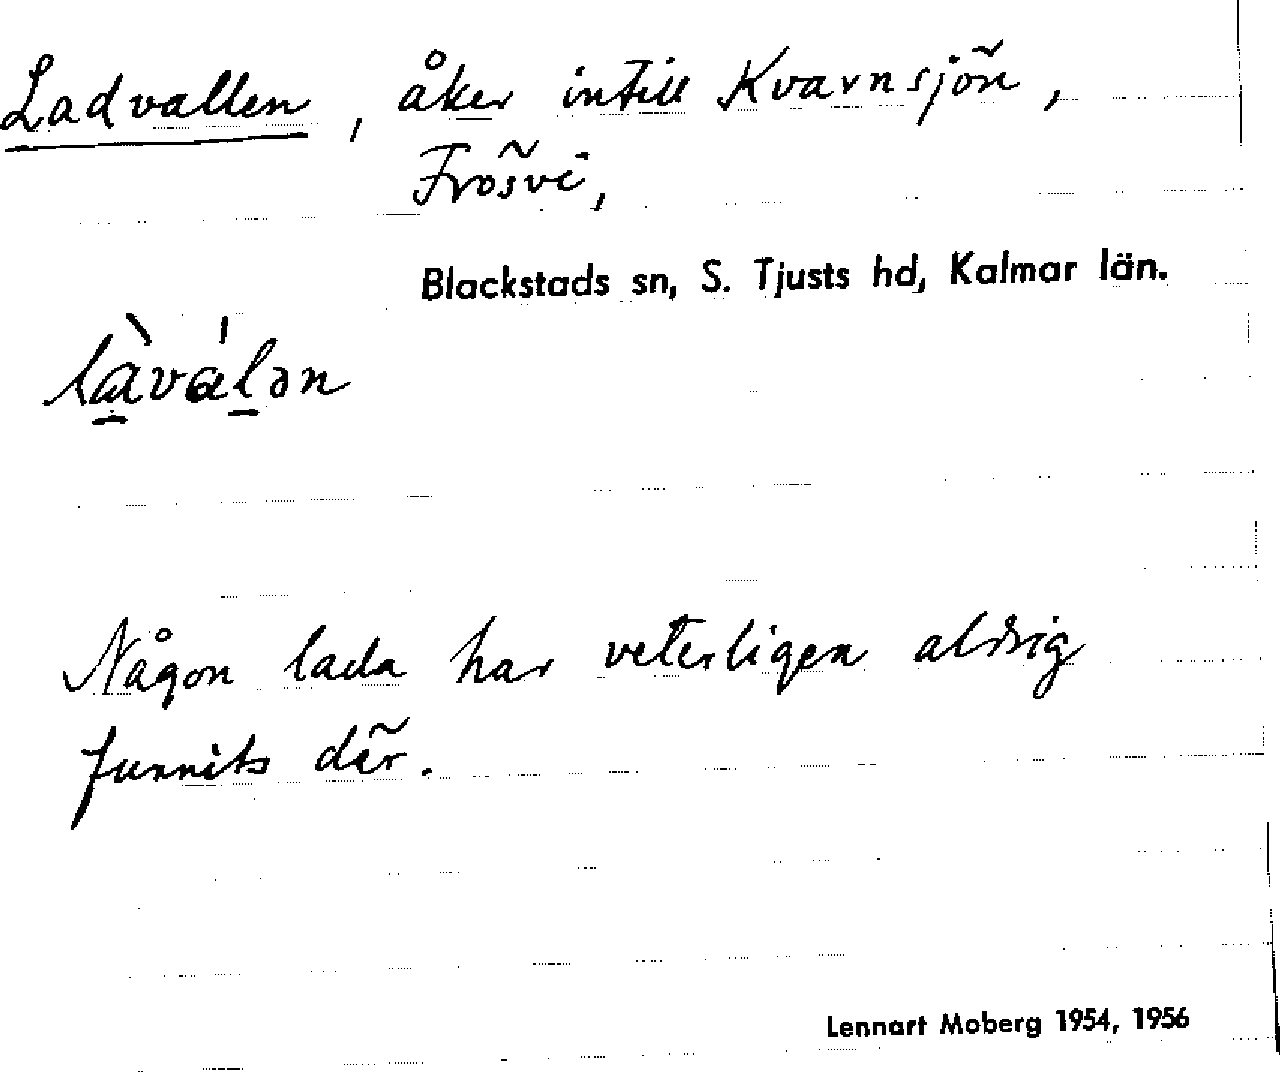 Ladvallen, åker intill Kvarnsjön,
Frösvi,
Blackstads sn, S. Tjusts hd, Kalmar län.
là̠vál̠ən
Någon lada har veterligen aldrig
funnits där.
Lennart Moberg 1954, 1956